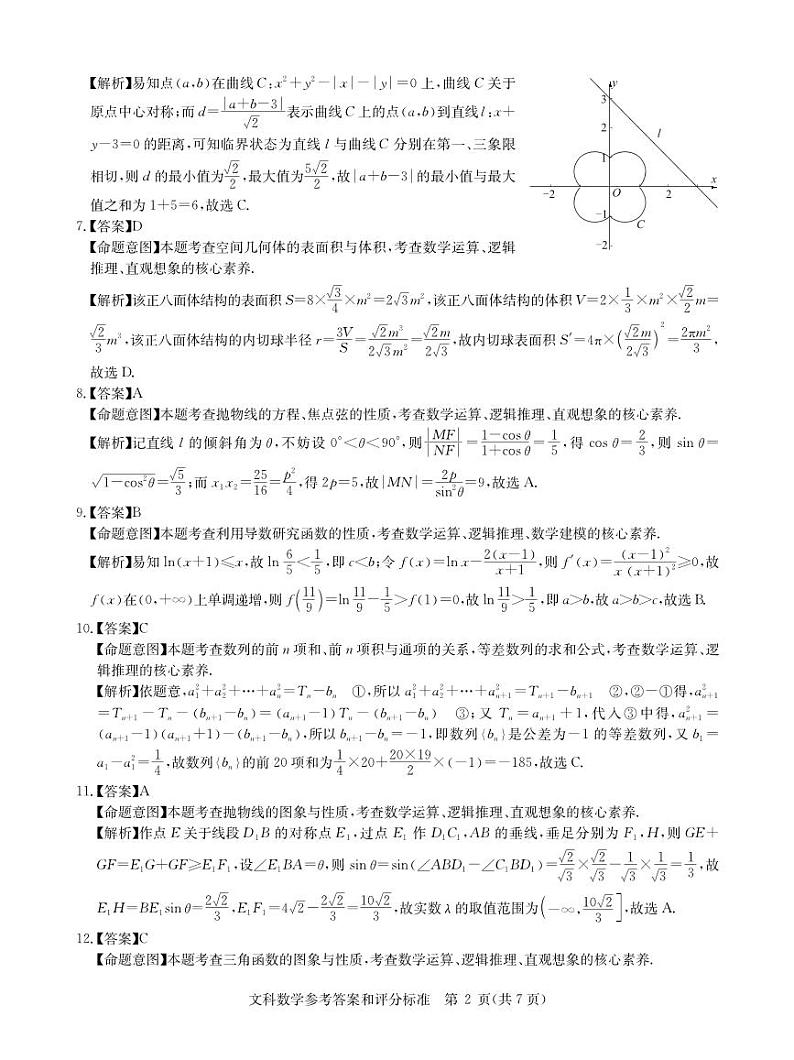 【解析】易知点(a,b)在曲线C:x²+y²-|x|-|y|=0上,曲线C关于
原点中心对称;而d=|a+b-3|/√2表示曲线C上的点(a,b)到直线l:x+
y-3=0的距离,可知临界状态为直线l与曲线C分别在第一、三象限
相切,则d的最小值为√2/2,最大值为5√2/2,故|a+b-3|的最小值与最大
值之和为1+5=6,故选C.
y
3
2
l
1
x
-2
O
2
-1
C
-2
7.【答案】D
【命题意图】本题考查空间几何体的表面积与体积,考查数学运算、逻辑
推理、直观想象的核心素养.
【解析】该正八面体结构的表面积S=8×√3/4×m²=2√3m²,该正八面体结构的体积V=2×1/3×m²×√2/2m=
√2/3m³,该正八面体结构的内切球半径r=3V/S=√2m³/2√3m²=√2m/2√3,故内切球表面积S′=4π×(√2m/2√3)²=2πm²/3,
故选D.
8.【答案】A
【命题意图】本题考查抛物线的方程、焦点弦的性质,考查数学运算、逻辑推理、直观想象的核心素养.
【解析】记直线l的倾斜角为θ,不妨设0°<θ<90°,则|MF|/|NF|=1-cosθ/1+cosθ=1/5,得cosθ=2/3,则sinθ=
√1-cos²θ=√5/3;而x₁x₂=25/16=p²/4,得2p=5,故|MN|=2p/sin²θ=9,故选A.
9.【答案】B
【命题意图】本题考查利用导数研究函数的性质,考查数学运算、逻辑推理、数学建模的核心素养.
【解析】易知ln(x+1)≤x,故ln 6/5<1/5,即c<b;令f(x)=lnx-2(x-1)/x+1,则f′(x)=(x-1)²/x(x+1)²≥0,故
f(x)在(0,+∞)上单调递增,则f(11/9)=ln 11/9-1/5>f(1)=0,故ln 11/9>1/5,即a>b,故a>b>c,故选B.
10.【答案】C
【命题意图】本题考查数列的前n项和、前n项积与通项的关系,等差数列的求和公式,考查数学运算、逻
辑推理的核心素养.
【解析】依题意,a₁²+a₂²+⋯+aₙ²=Tₙ-bₙ ①,所以a₁²+a₂²+⋯+aₙ₊₁²=Tₙ₊₁-bₙ₊₁ ②,②-①得,aₙ₊₁²
=Tₙ₊₁-Tₙ-(bₙ₊₁-bₙ)=(aₙ₊₁-1)Tₙ-(bₙ₊₁-bₙ) ③;又Tₙ=aₙ₊₁+1,代入③中得,aₙ₊₁²=
(aₙ₊₁-1)(aₙ₊₁+1)-(bₙ₊₁-bₙ),所以bₙ₊₁-bₙ=-1,即数列{bₙ}是公差为-1的等差数列,又b₁=
a₁-a₁²=1/4,故数列{bₙ}的前20项和为1/4×20+20×19/2×(-1)=-185,故选C.
11.【答案】A
【命题意图】本题考查抛物线的图象与性质,考查数学运算、逻辑推理、直观想象的核心素养.
【解析】作点E关于线段D₁B的对称点E₁,过点E₁作D₁C₁,AB的垂线,垂足分别为F₁,H,则GE+
GF=E₁G+GF≥E₁F₁,设∠E₁BA=θ,则sinθ=sin(∠ABD₁-∠C₁BD₁)=√2/√3×√2/√3-1/√3×1/√3=1/3,故
E₁H=BE₁sinθ=2√2/3,E₁F₁=4√2-2√2/3=10√2/3,故实数λ的取值范围为(-∞,10√2/3],故选A.
12.【答案】C
【命题意图】本题考查三角函数的图象与性质,考查数学运算、逻辑推理、直观想象的核心素养.
文科数学参考答案和评分标准 第 2 页(共 7 页)